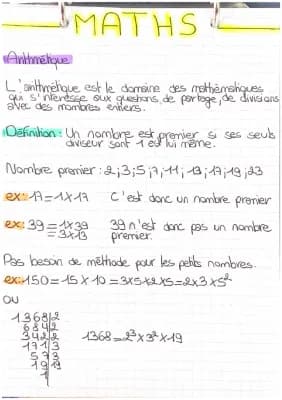 MATHS
Arithmétique
L'arithmétique est le domaine des mathématiques
qui s'intéresse aux questions, de partage, de divisions
avec des nombres entiers.
Définition : Un nombre est premier si ses seuls
diviseur sont 1 et lui même.
Nombre premier : 2;3;5;7;11;13;17;19;23
ex: 17 = 1x17 C'est donc un nombre premier
ex: 39 = 1x39 39 n'est donc pas un nombre
= 3x13 premier.
Pas besoin de méthode pour les petits nombres.
ex: 150 = 15 x 10 = 3x5x2x5 = 2x3x5²
ou
1368|2
684|2
342|2 1368 = 2³ x 3² x 19
171|3
57|3
19|19
1